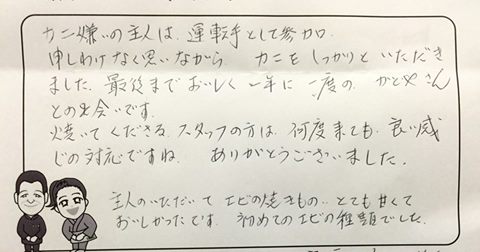 カニ嫌いの主人は、運転手として参加。
申しわけなく思いながら、カニをしっかりといただき
ました。最後までおいしく一年に一度の、かとやさん
との出会いです。
焼いてくださる、スタッフの方は、何度来ても、良い感
じの対応ですね。ありがとうございました。
主人のいただいてエビの焼きもの、とても甘くて
おいしかったです。初めてのエビの種類でした。